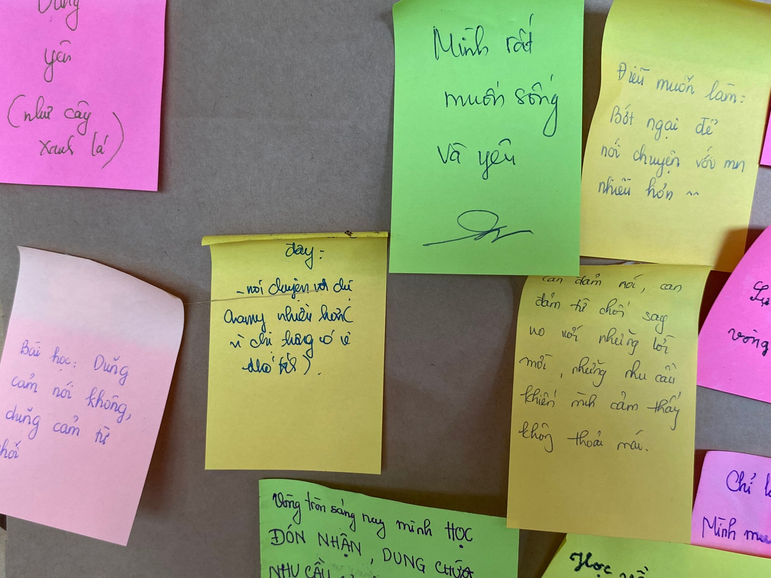 yên
(như cây
xanh lá)
Mình rất
muốn sống
và yêu
Điều muốn làm:
Bớt ngại để
nói chuyện với mn
nhiều hơn ~
đây:
- nói chuyện với chị
nhiều hơn(
vì chị
).
can đảm nói, can
đảm từ chối say
no với những lời
mời, những nhu cầu
khiến mình cảm thấy
không thoải mái.
Bài học: Dũng
cảm nói không,
dũng cảm từ
chối
vòng
Chỉ l
Mình mu
Vòng tròn sáng nay mình HỌC
ĐÓN NHẬN, DUNG CHỨA
NHU CẦU
Học